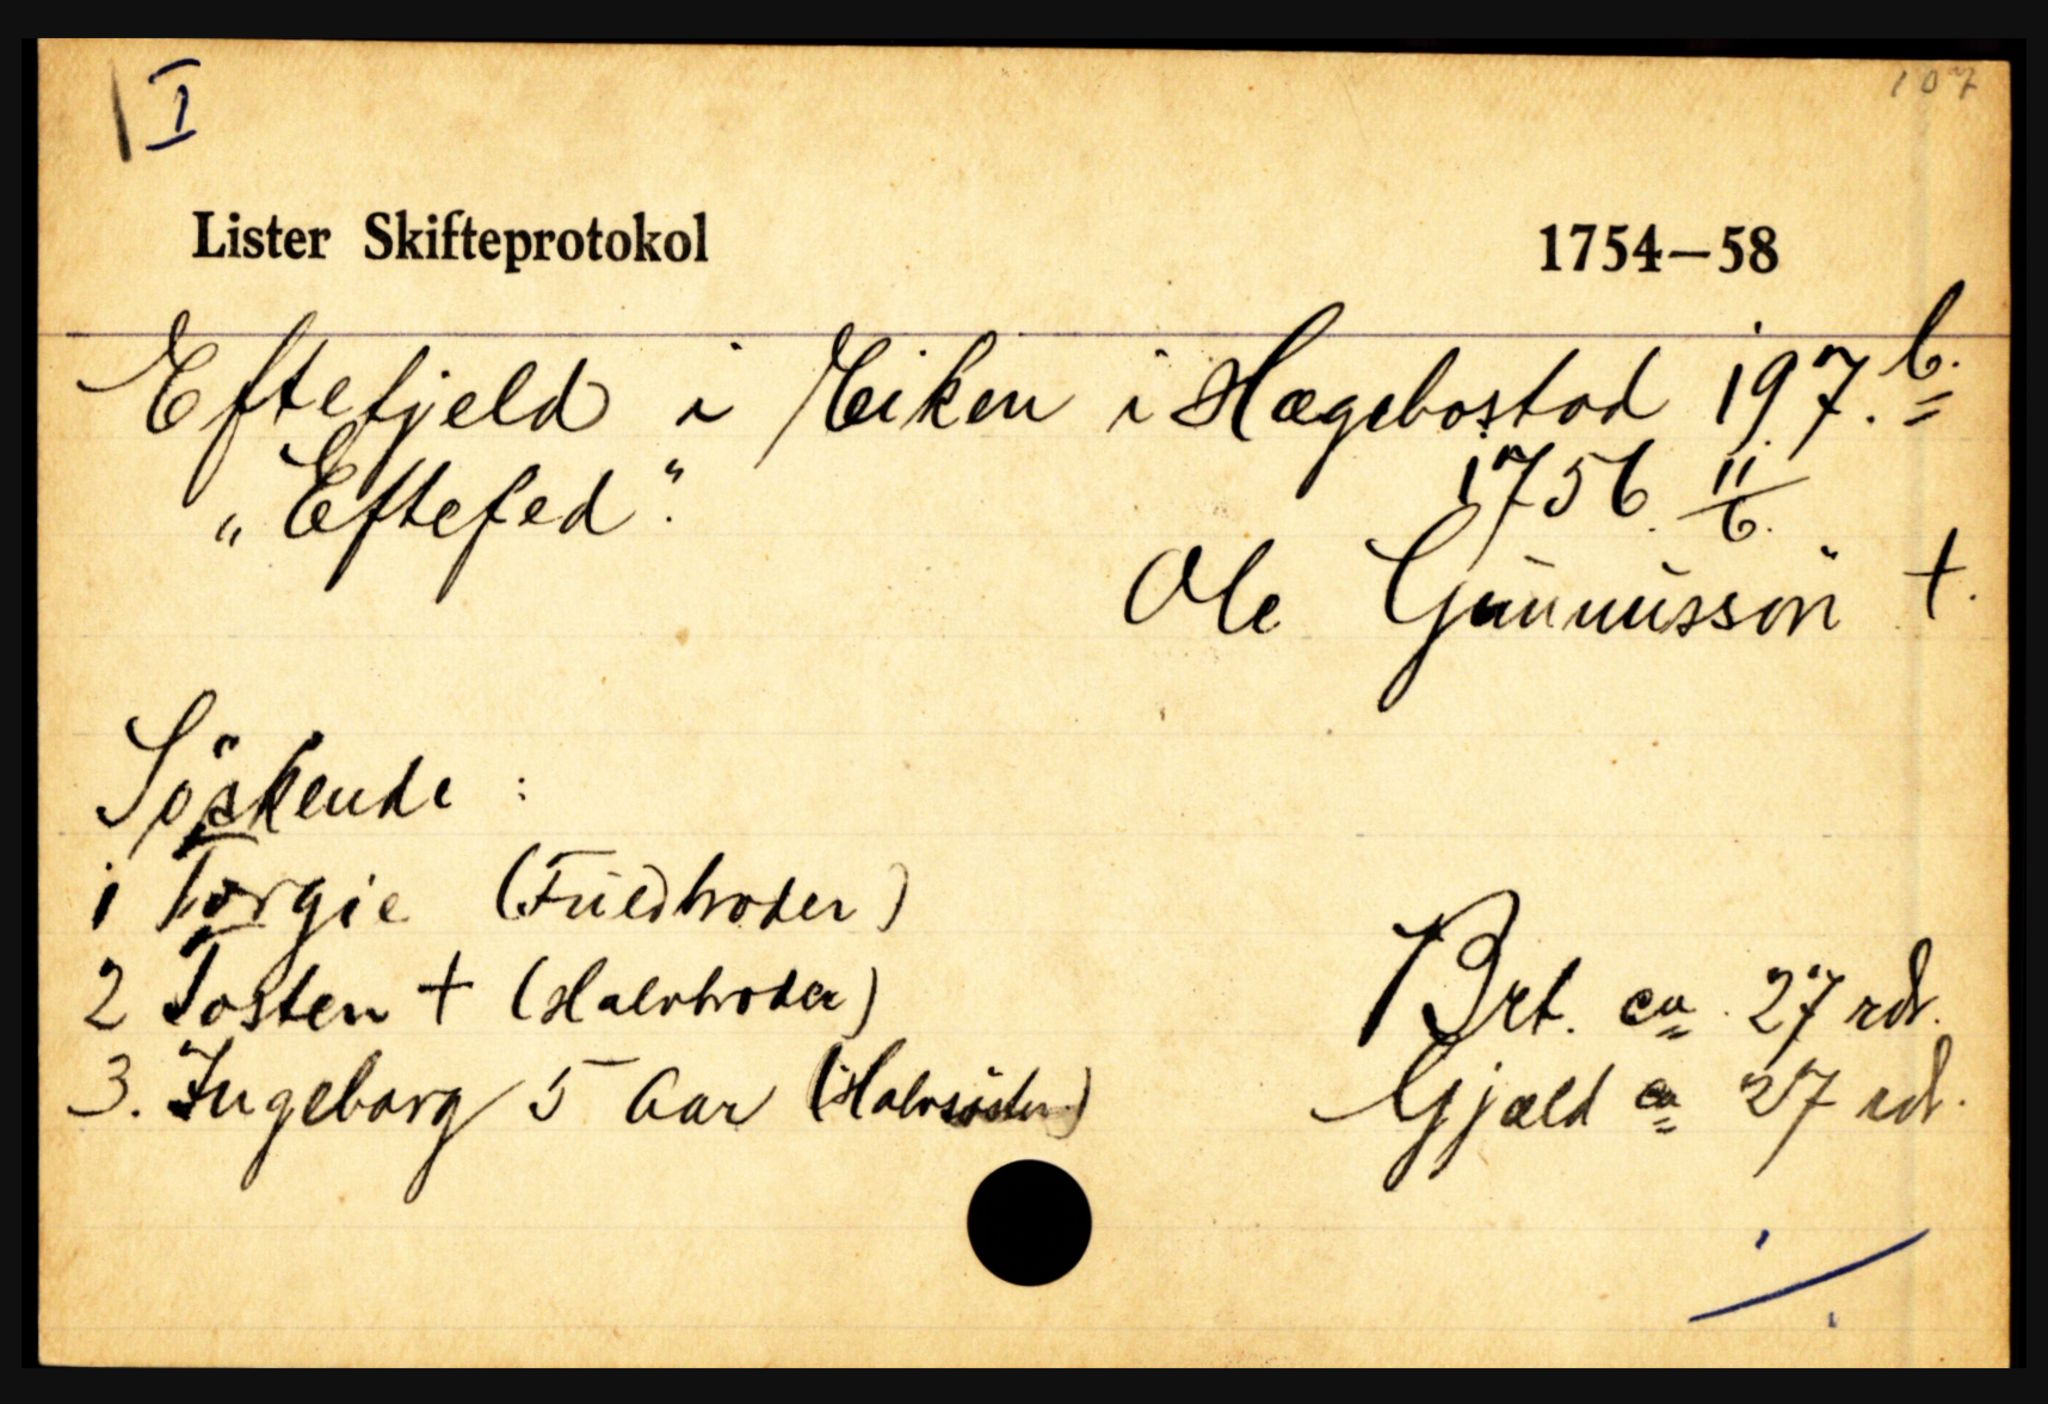 I 107
Lister Skifteprotokol 1754–58
Eftefjeld i Eiken i Hægebostad 197.b.
„Eftefed". 1756 11/6.
Ole Gunnusson +.
Söskende :
1 Torgie (Fuldbroder)
2 Tosten + (Halvbroder) Brt. ca. 27 rdr.
3. Ingeborg 5 Aar (Halvsöster) Gjæld ca 27 rdr.